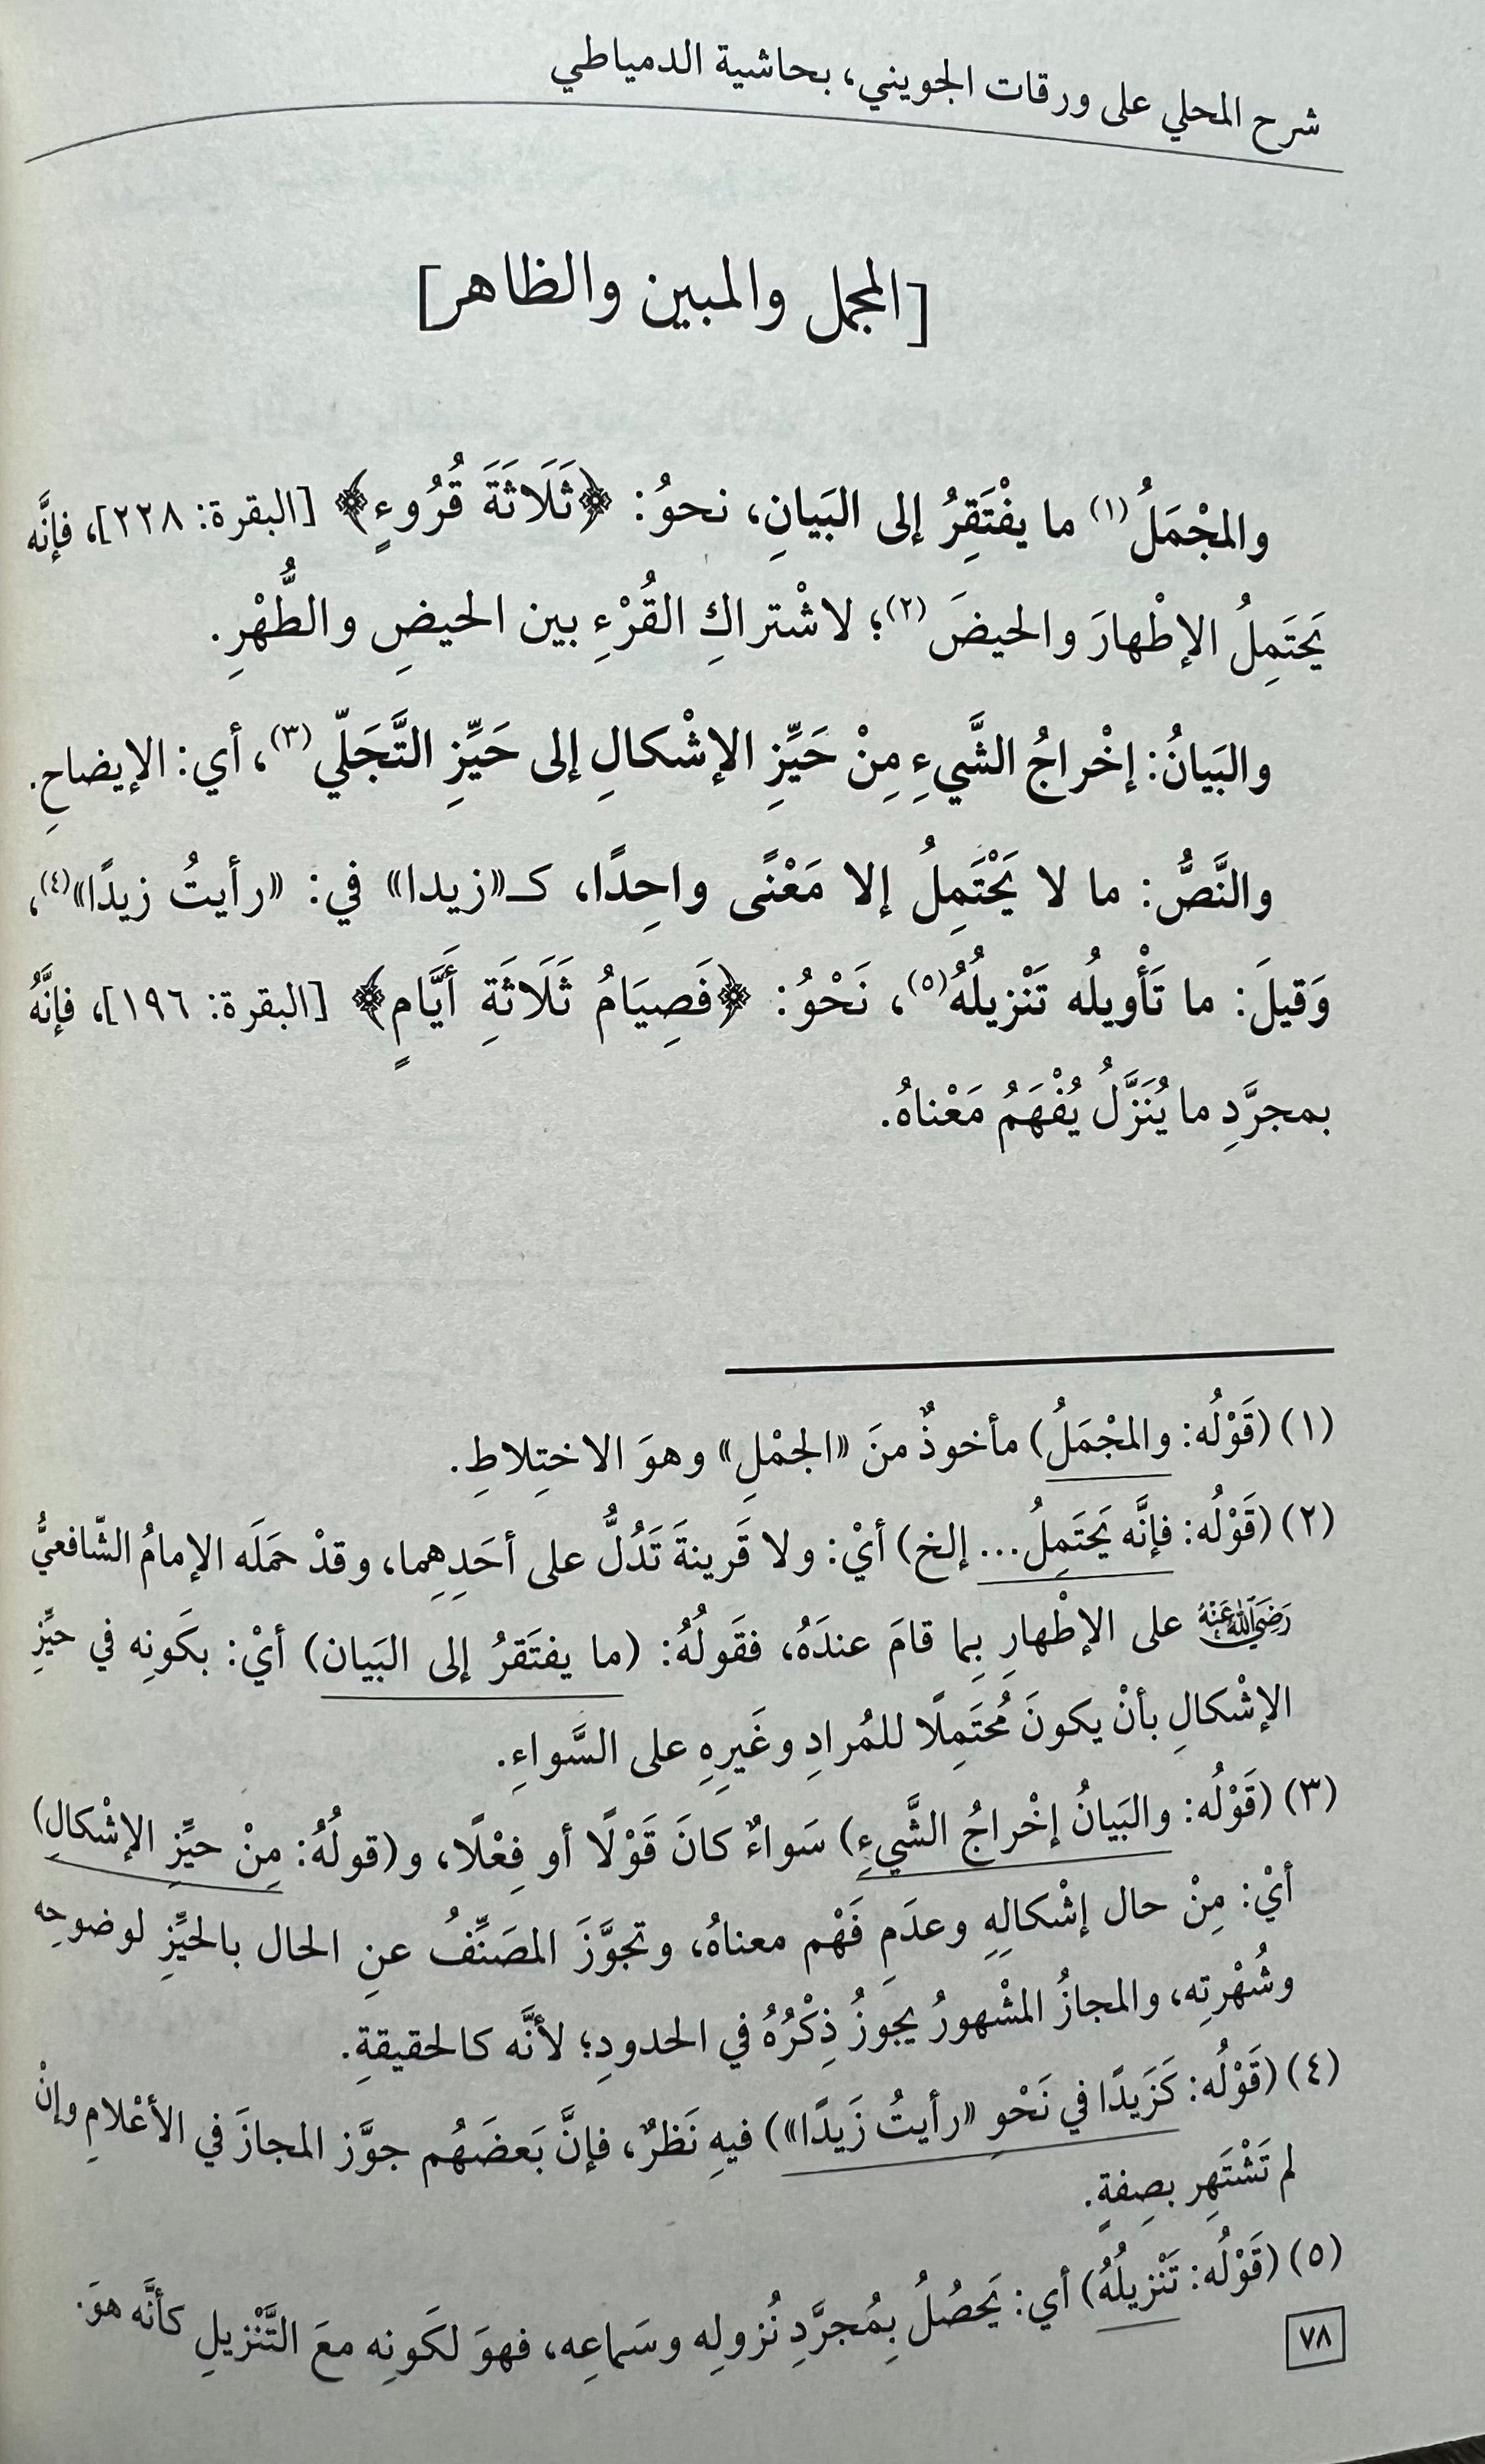 شرح المحلي على ورقات الجويني، بحاشية الدمياطي
[المجمل والمبين والظاهر]
والمجْمَلُ(١) ما يفْتَقِرُ إلى البَيانِ، نحوُ: ﴿ثَلَاثَةَ قُرُوءٍ﴾ [البقرة: ٢٢٨]، فإنَّه
يَحتَمِلُ الإطْهارَ والحيضَ(٢)؛ لاشْتراكِ القُرْءِ بين الحيضِ والطُّهْرِ.
والبَيانُ: إخْراجُ الشَّيءِ مِنْ حَيِّزِ الإشْكالِ إلى حَيِّزِ التَّجَلّي(٣)، أي: الإيضاحِ.
والنَّصُّ: ما لا يَحْتَمِلُ إلا مَعْنًى واحِدًا، كـ«زيدا» في: «رأيتُ زيدًا»(٤)،
وَقيلَ: ما تَأْويلُه تَنْزيلُهُ(٥)، نَحْوُ: ﴿فَصِيَامُ ثَلَاثَةِ أَيَّامٍ﴾ [البقرة: ١٩٦]، فإنَّهُ
بمجرَّدِ ما يُنَزَّلُ يُفْهَمُ مَعْناهُ.
(١) (قَوْلُه: والمجْمَلُ) مأخوذٌ منَ «الجمْلِ» وهوَ الاختِلاطِ.
(٢) (قَوْلُه: فإنَّه يَحتَمِلُ... إلخ) أيْ: ولا قَرينةَ تَدُلُّ على أحَدِهِما، وقدْ حمَلَه الإمامُ الشّافعيُّ
رَضِيَ اللهُ عَنْهُ على الإطْهارِ بِما قامَ عندَهُ، فقَولُهُ: (ما يفتَقرُ إلى البَيان) أيْ: بكَونِه في حيِّزِ
الإشْكالِ بأنْ يكونَ مُحتَمِلًا للمُرادِ وغَيرِهِ على السَّواءِ.
(٣) (قَوْلُه: والبَيانُ إخْراجُ الشَّيءِ) سَواءٌ كانَ قَوْلًا أو فِعْلًا، و(قولُهُ: مِنْ حيِّزِ الإشْكالِ)
أيْ: مِنْ حال إشْكالِهِ وعدَمِ فَهْم معناهُ، وتجوَّزَ المصَنِّفُ عنِ الحال بالحيِّزِ لوضوحِه
وشُهْرتِه، والمجازُ المشْهورُ يجوزُ ذِكْرُهُ في الحدودِ؛ لأنَّه كالحقيقةِ.
(٤) (قَوْلُه: كَزَيدًا في نَحْوِ «رأيتُ زَيدًا») فيهِ نَظرٌ، فإنَّ بَعضَهُم جوَّز المجازَ في الأعْلامِ وإنْ
لم تَشْتَهِر بصِفةٍ.
(٥) (قَوْلُه: تَنْزيلُهُ) أي: يَحصُلُ بِمُجرَّدِ نُزولِه وسَماعِه، فهوَ لكَونِه معَ التَّنْزيلِ كأنَّه هوَ.
٧٨